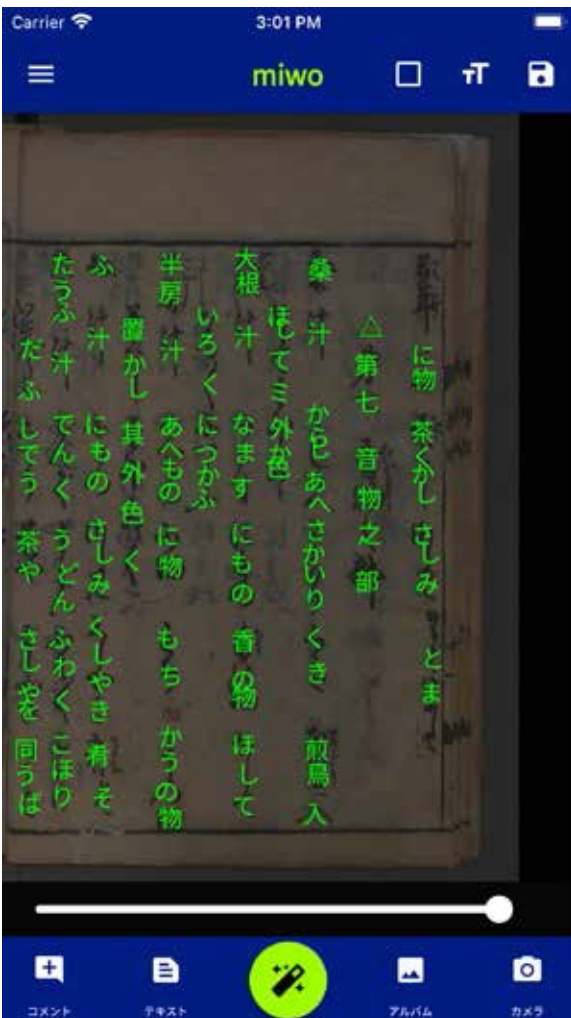 Carrier
3:01 PM
miwo
に物 茶くかし さしみ とま
△第七 音物之部
桑 汁 からし あへ さかいり くき 煎鳥 入
ほしてミ 外か色
大根 汁 なます にもの 香の物 ほして
いろく につかふ
半房 汁 あへもの に物 もち かうの物
置かし 其外色く
ふ 汁 にもの さしみ くしやき 肴 そ
たうふ 汁 てんく うどん ふわく こほり
だふ してう 茶や さし やを 同うは
コメント
テキスト
アルバム
カメラ